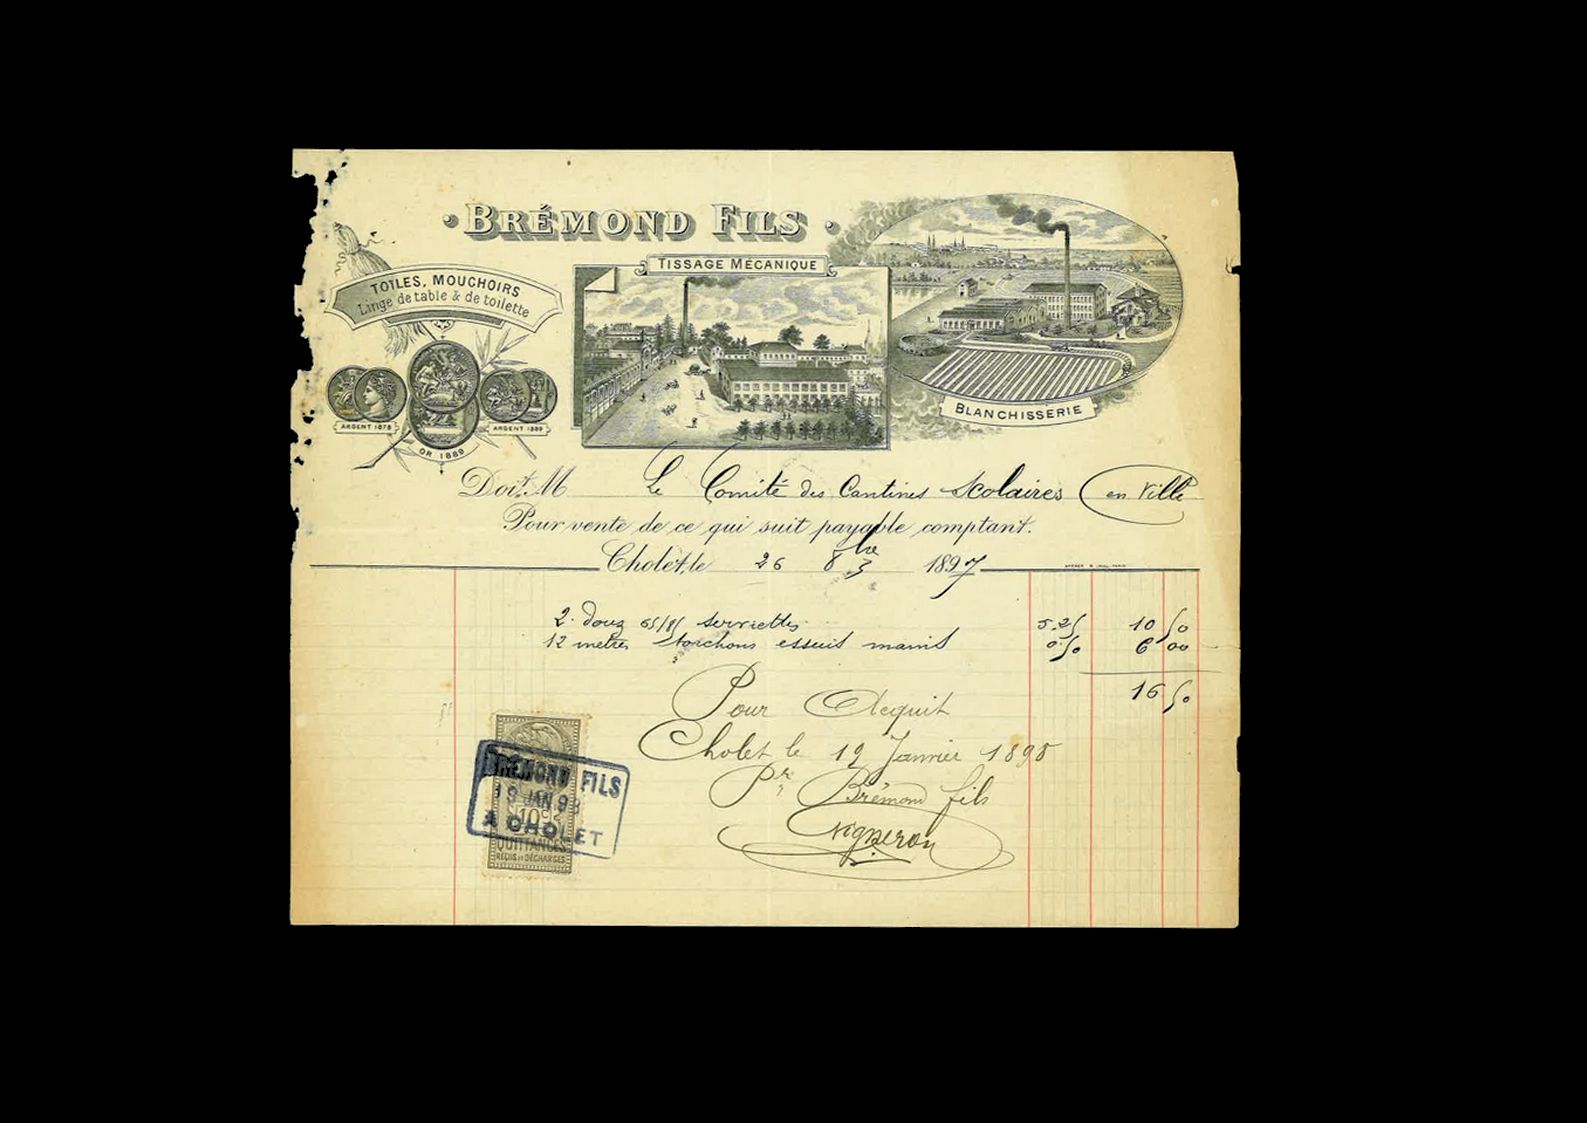 BRÉMOND FILS
TISSAGE MÉCANIQUE
TOILES, MOUCHOIRS
Linge de table & de toilette
ARGENT 1878
OR 1889
ARGENT 1889
BLANCHISSERIE
Doit M Le Comité des Cantines Scolaires (en Ville
Pour vente de ce qui suit payable comptant.
Cholet, le 26 8bre 1897
2 douz 65/85 serviettes 5.25 10 50
12 mètres torchons essuit mains 0.50 6 00
16 50
Pour Acquit
Cholet le 19 Janvier 1898
Pr Brémond fils
Vigneron
BRÉMOND FILS
19 JAN 98
A CHOLET
10c
QUITTANCES
REÇUS ET DÉCHARGES